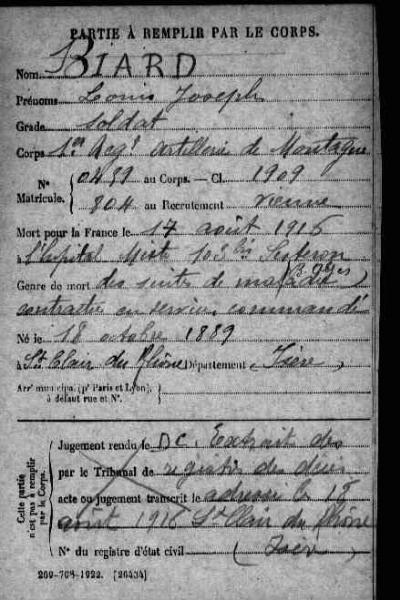 PARTIE À REMPLIR PAR LE CORPS.
Nom BIARD
Prénoms Louis Joseph
Grade Soldat
Corps 1er Régt Artillerie de Montagne
Nº Matricule. { 0489 au Corps. — Cl. 1909
804 au Recrutement Vienne
Mort pour la France le 17 août 1916
à l'hopital Mixte 103 bis Sisteron
(B. Alpes)
Genre de mort des suites de maladie
contractée en service commandé
Né le 18 octobre 1889
à St Clair du Rhône Département Isère
Arrt municipal (pr Paris et Lyon),
à défaut rue et Nº.
Cette partie n'est pas à remplir par le Corps.
Jugement rendu le DC. Extrait des
par le Tribunal de registres des décès
acte ou jugement transcrit le adressé le 18
août 1916 St Clair du Rhône
Nº du registre d'état civil (Isère)
269-708-1922. [26434]